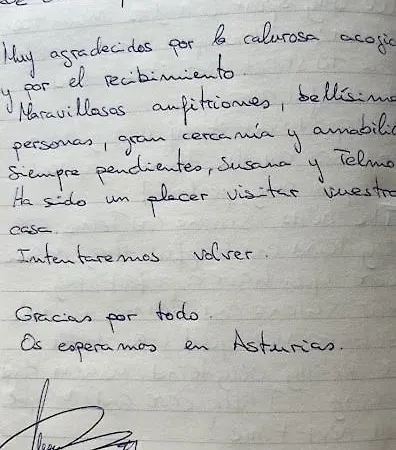 Muy agradecidos por la calurosa acogic
y por el recibimiento.
Maravillosos anfitriones, bellísima
personas, gran cercanía y amabilic
siempre pendientes, Susana y Telmo
Ha sido un placer visitar vuestra
casa.
Intentaremos volver.
Gracias por todo.
Os esperamos en Asturias.